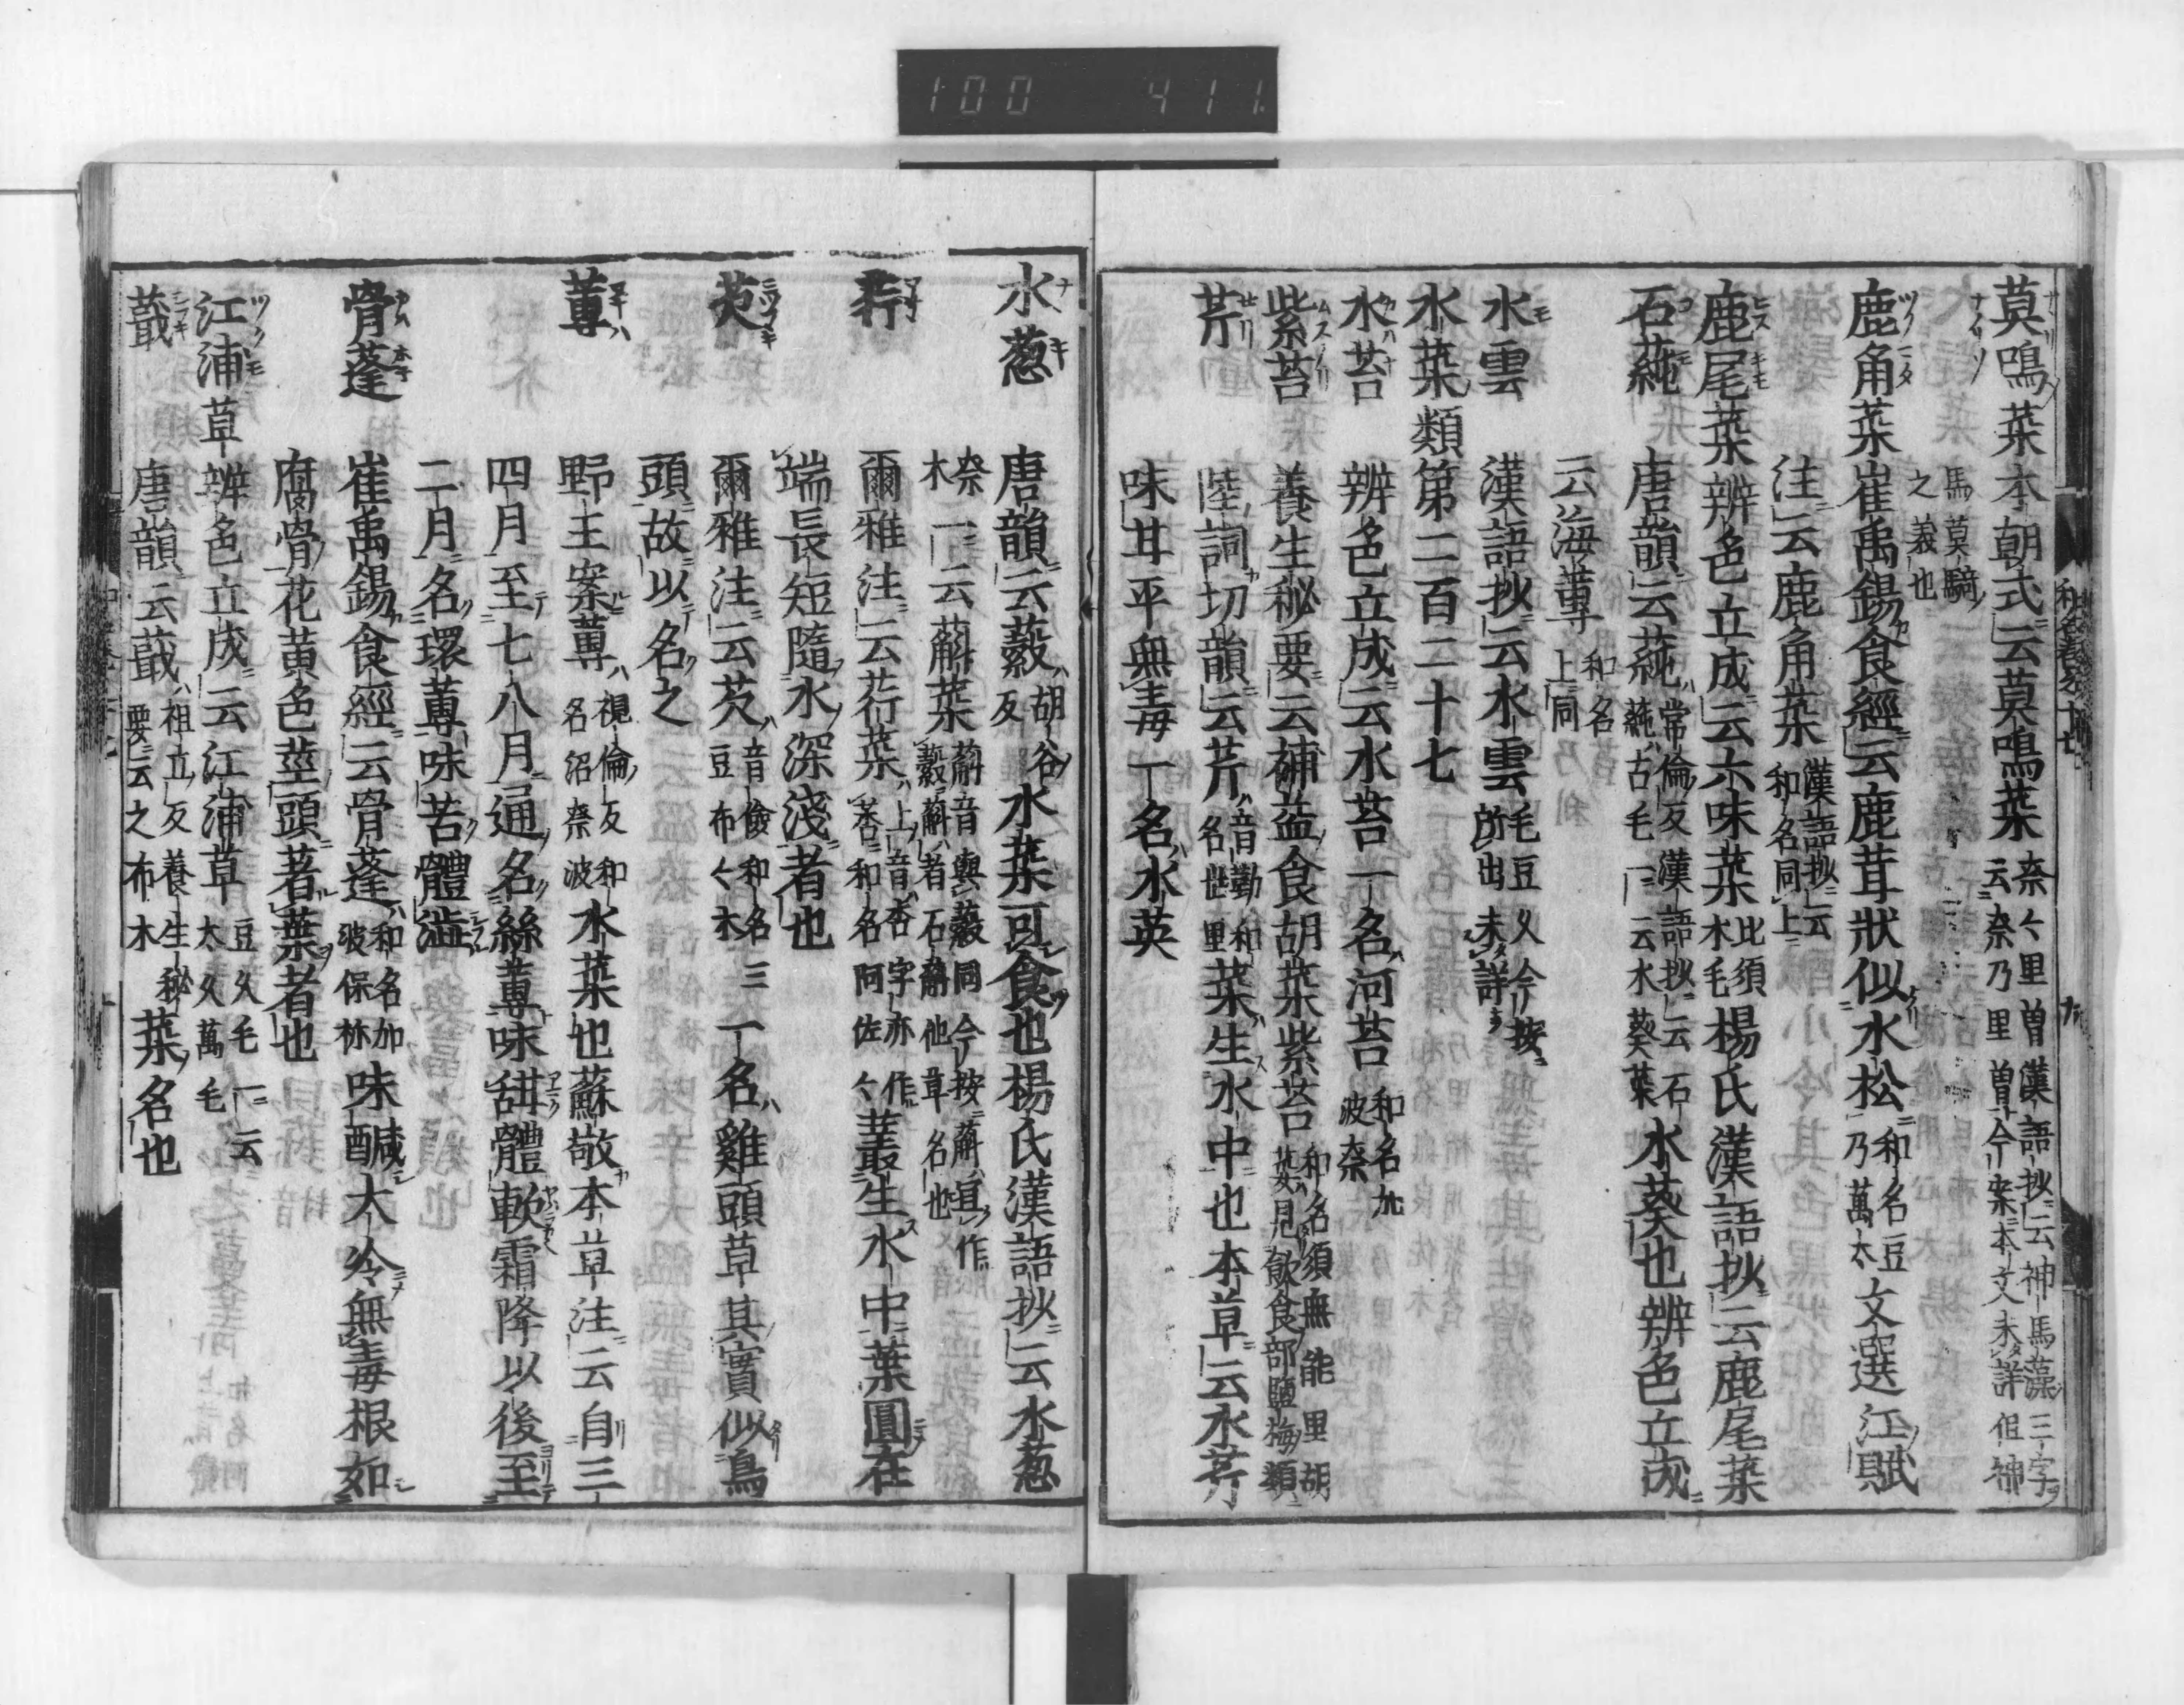 莫鳴菜 本朝式云莫鳴菜 奈々里曽漢語抄云神馬藻三字
云奈乃里曽今案本文未詳但神
馬莫騎
之義也
鹿角菜 崔禹錫食經云鹿茸狀似水松 和名豆
乃萬太 文選江賦
注云鹿角菜 漢語抄云
和名同上
鹿尾菜 辨色立成云六味菜 比須
木毛 楊氏漢語抄云鹿尾菜
石蓴 唐韻云蒓 常倫反漢語抄云石
蒓古毛一云水葵葉 水葵也辨色立成
云海蓴 和名
上同
水雲 漢語抄云水雲 毛豆久今按
所出未詳
水菜類第二百二十七
水苔 辨色立成云水苔一名河苔 和名加
波奈
紫苔 養生秘要云補益食胡菜紫苔 和名須無能里胡
荽見飲食部鹽梅類
芹 陸詞切韻云芹 音勤和
名世里 菜生水中也本草云水芹
味甘平無毒一名水英
水葱 唐韻云蔛 胡谷
反 水菜可食也楊氏漢語抄云水葱
奈
木 一云蔛菜
爾雅注云荇菜 上音杏字亦作
莕和名阿佐々 叢生水中葉圓在
端長短隨水深淺者也
芡 爾雅注云芡 音儉和名三
豆布々木 一名雞頭草其實似鳥
頭故以名之
蓴 野王案蓴 視倫反和
名沼奈波 水菜也蘇敬本草注云自三
四月至七八月通名絲蓴味甜體軟霜降以後至
二月名環蓴味苦體澁
骨蓬 崔禹錫食經云骨蓬 和名加
波保祢 味鹹大冷無毒根如
腐骨花黄色莖頭著葉者也
江浦草 辨色立成云江浦草 豆久毛一云
太久萬毛
蕺 唐韻云蕺 祖立反養生秘
要云之布木 菜名也